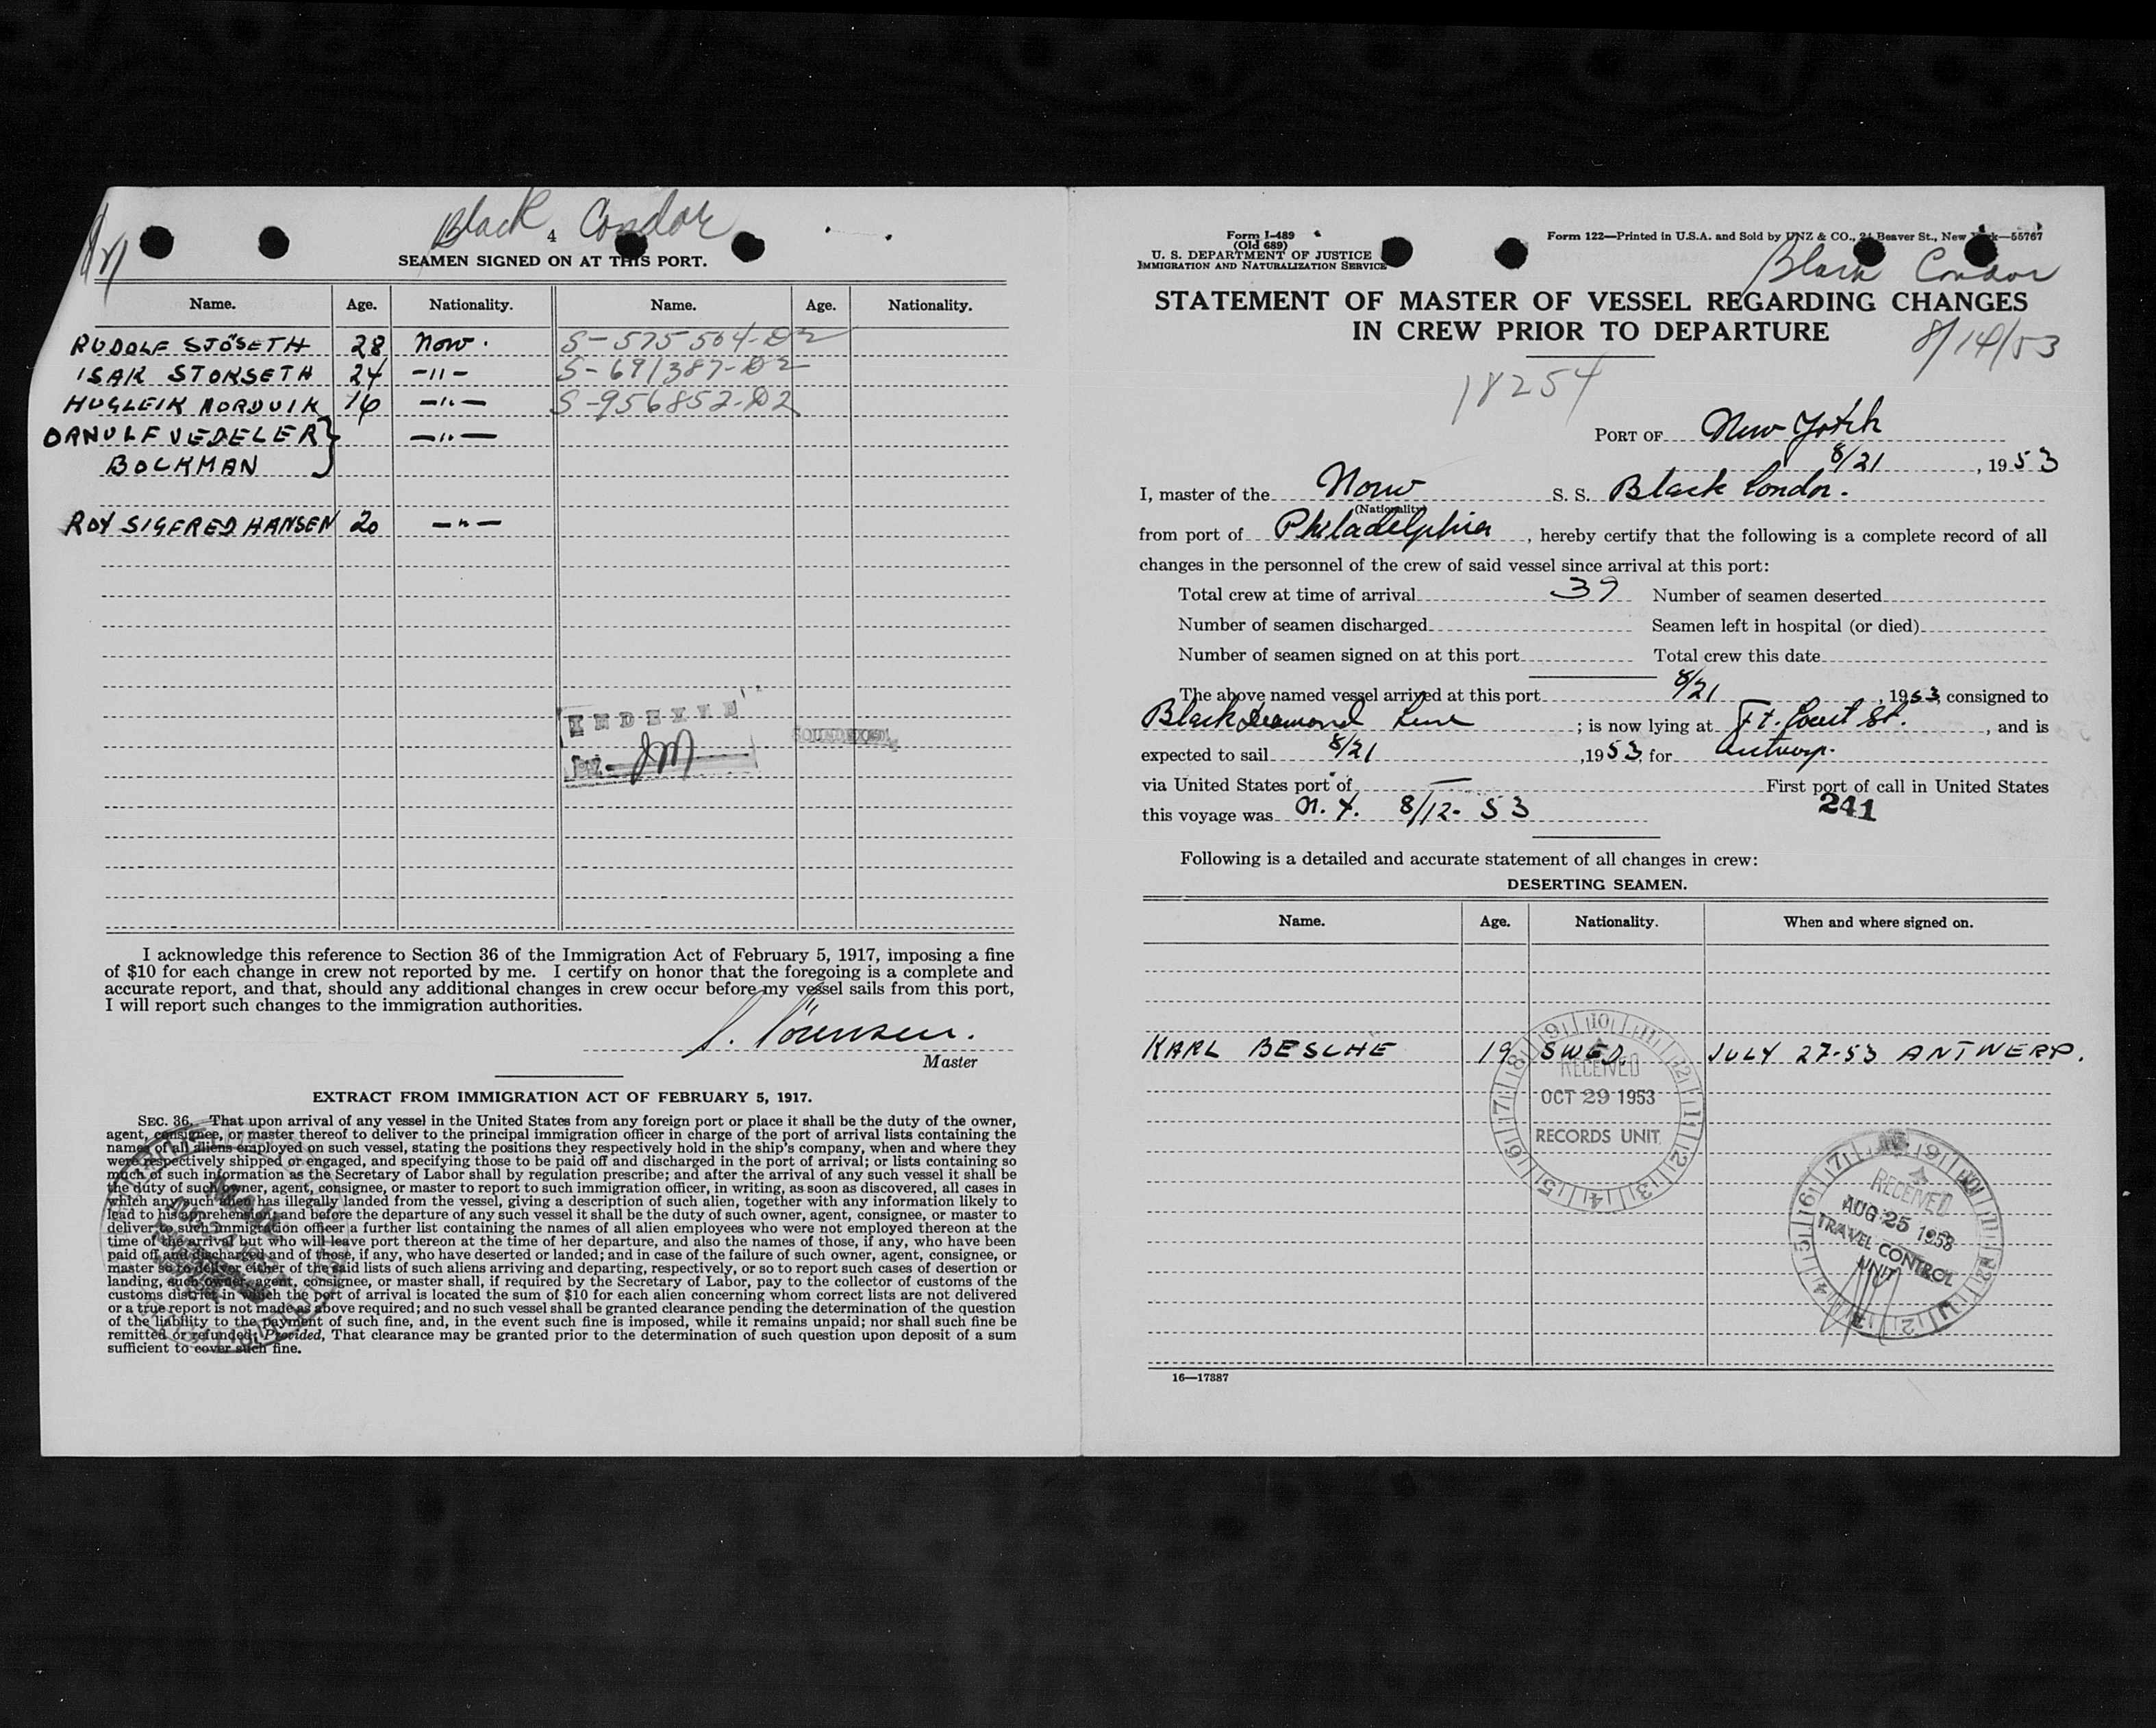 Black Condor
4
SEAMEN SIGNED ON AT THIS PORT.
Name. Age. Nationality. Name. Age. Nationality.
RUDOLF SJÖSETH 28 Now. S-575564-D2
ISAK STORSETH 24 -"- S-691387-D2
HUGLEIK NORDVIK 16 -"- S-956852-D2
ORNULF VEDELER } -"-
BOCKMAN
ROY SIGFRED HANSEN 20 -"-
INDEXED
JM
SOUNDEXED
I acknowledge this reference to Section 36 of the Immigration Act of February 5, 1917, imposing a fine
of $10 for each change in crew not reported by me. I certify on honor that the foregoing is a complete and
accurate report, and that, should any additional changes in crew occur before my vessel sails from this port,
I will report such changes to the immigration authorities.
Master
EXTRACT FROM IMMIGRATION ACT OF FEBRUARY 5, 1917.
SEC. 36. That upon arrival of any vessel in the United States from any foreign port or place it shall be the duty of the owner,
agent, consignee, or master thereof to deliver to the principal immigration officer in charge of the port of arrival lists containing the
names of all aliens employed on such vessel, stating the positions they respectively hold in the ship's company, when and where they
were respectively shipped or engaged, and specifying those to be paid off and discharged in the port of arrival; or lists containing so
much of such information as the Secretary of Labor shall by regulation prescribe; and after the arrival of any such vessel it shall be
the duty of such owner, agent, consignee, or master to report to such immigration officer, in writing, as soon as discovered, all cases in
which any such alien has illegally landed from the vessel, giving a description of such alien, together with any information likely to
lead to his apprehension; and before the departure of any such vessel it shall be the duty of such owner, agent, consignee, or master to
deliver to such immigration officer a further list containing the names of all alien employees who were not employed thereon at the
time of the arrival but who will leave port thereon at the time of her departure, and also the names of those, if any, who have been
paid off and discharged and of those, if any, who have deserted or landed; and in case of the failure of such owner, agent, consignee, or
master so to deliver either of the said lists of such aliens arriving and departing, respectively, or so to report such cases of desertion or
landing, such owner, agent, consignee, or master shall, if required by the Secretary of Labor, pay to the collector of customs of the
customs district in which the port of arrival is located the sum of $10 for each alien concerning whom correct lists are not delivered
or a true report is not made as above required; and no such vessel shall be granted clearance pending the determination of the question
of the liability to the payment of such fine, and, in the event such fine is imposed, while it remains unpaid; nor shall such fine be
remitted or refunded: Provided, That clearance may be granted prior to the determination of such question upon deposit of a sum
sufficient to cover such fine.
Form I-489
(Old 689)
U. S. DEPARTMENT OF JUSTICE
IMMIGRATION AND NATURALIZATION SERVICE
Form 122—Printed in U.S.A. and Sold by UNZ & CO., 24 Beaver St., New York—55767
Black Condor
STATEMENT OF MASTER OF VESSEL REGARDING CHANGES
IN CREW PRIOR TO DEPARTURE
8/14/53
18254
PORT OF New York
8/21, 1953
I, master of the Norw S. S. Black Condor.
(Nationality)
from port of Philadelphia, hereby certify that the following is a complete record of all
changes in the personnel of the crew of said vessel since arrival at this port:
Total crew at time of arrival 39 Number of seamen deserted
Number of seamen discharged Seamen left in hospital (or died)
Number of seamen signed on at this port Total crew this date
The above named vessel arrived at this port 8/21, 1953, consigned to
Black Diamond Line; is now lying at Ft. Court St., and is
expected to sail 8/21, 1953, for Antwerp.
via United States port of — First port of call in United States
this voyage was N.Y. 8/12-53
241
Following is a detailed and accurate statement of all changes in crew:
DESERTING SEAMEN.
Name. Age. Nationality. When and where signed on.
KARL BESCHE 19 SWED. JULY 27-53 ANTWERP.
RECEIVED
OCT 29 1953
RECORDS UNIT
RECEIVED
AUG 25 1953
TRAVEL CONTROL
UNIT
16—17887